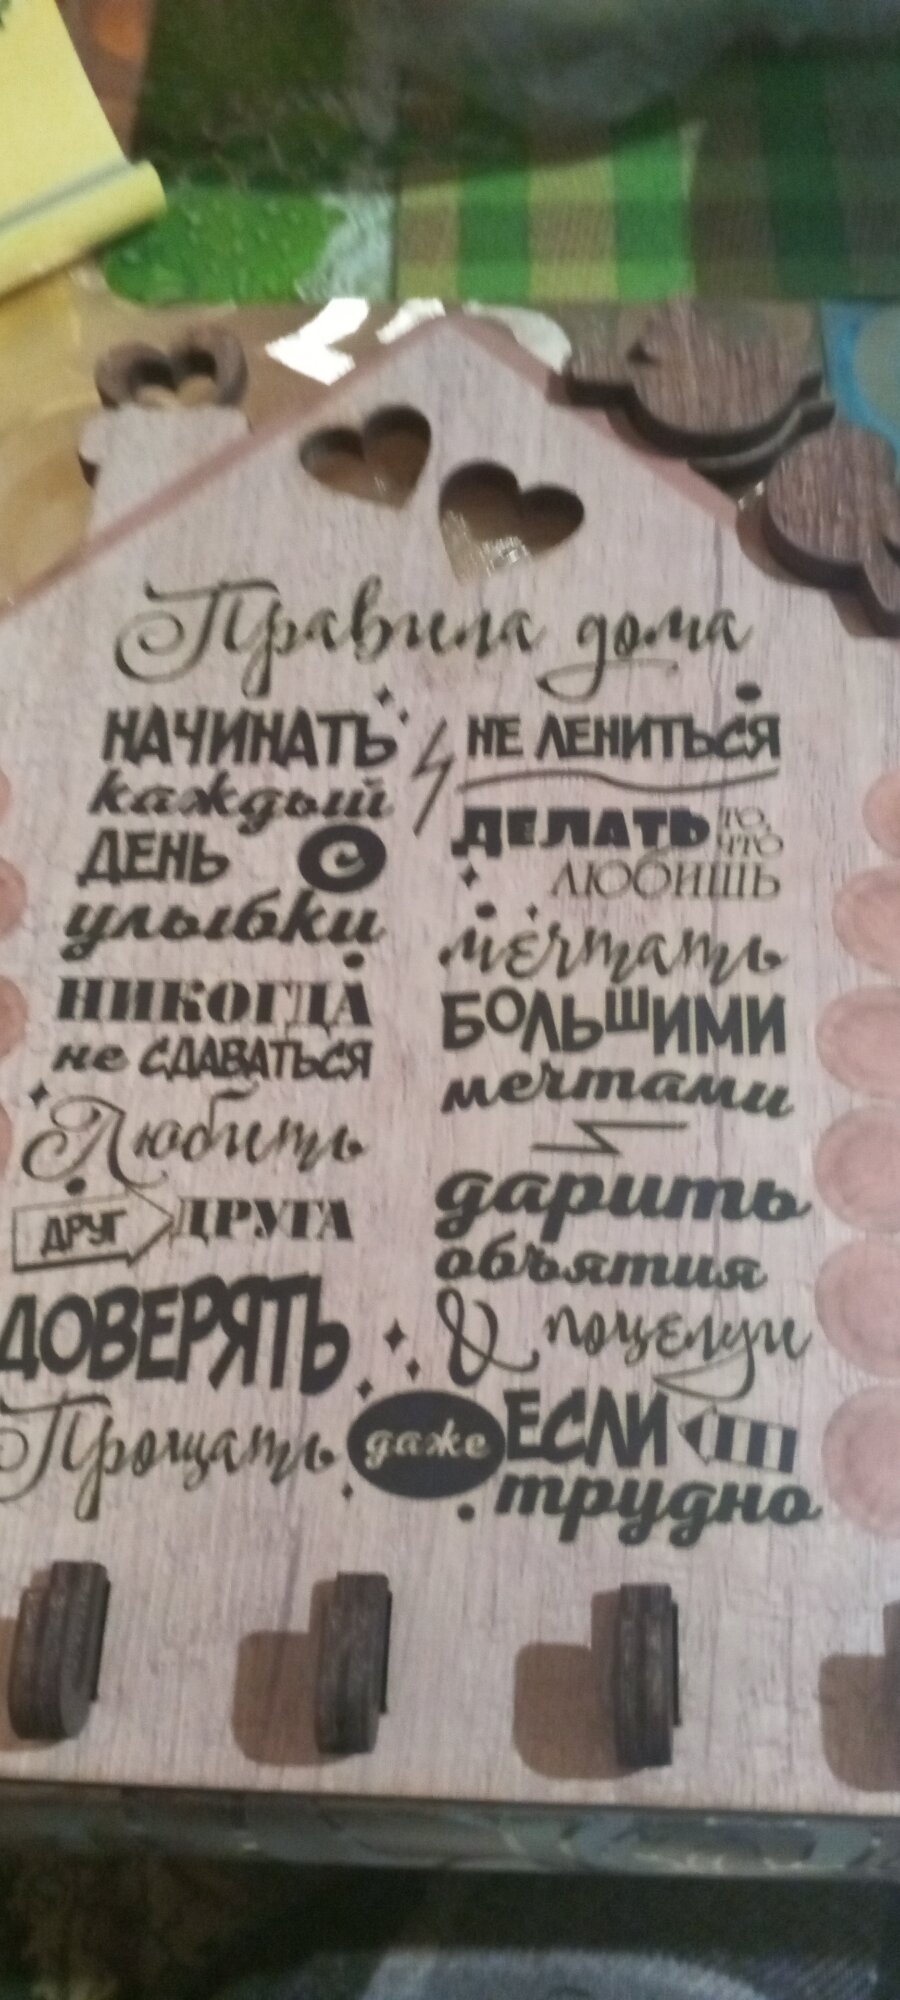 Правила дома
НАЧИНАТЬ
каждый
ДЕНЬ с
улыбки
НИКОГДА
не СДАВАТЬСЯ
Любить
ДРУГ ДРУГА
ДОВЕРЯТЬ
НЕ ЛЕНИТЬСЯ
ДЕЛАТЬ ТО, ЧТО
ЛЮБИШЬ
мечтать
БОЛЬШИМИ
мечтами
дарить
объятия
& поцелуи
Прощать даже ЕСЛИ
трудно